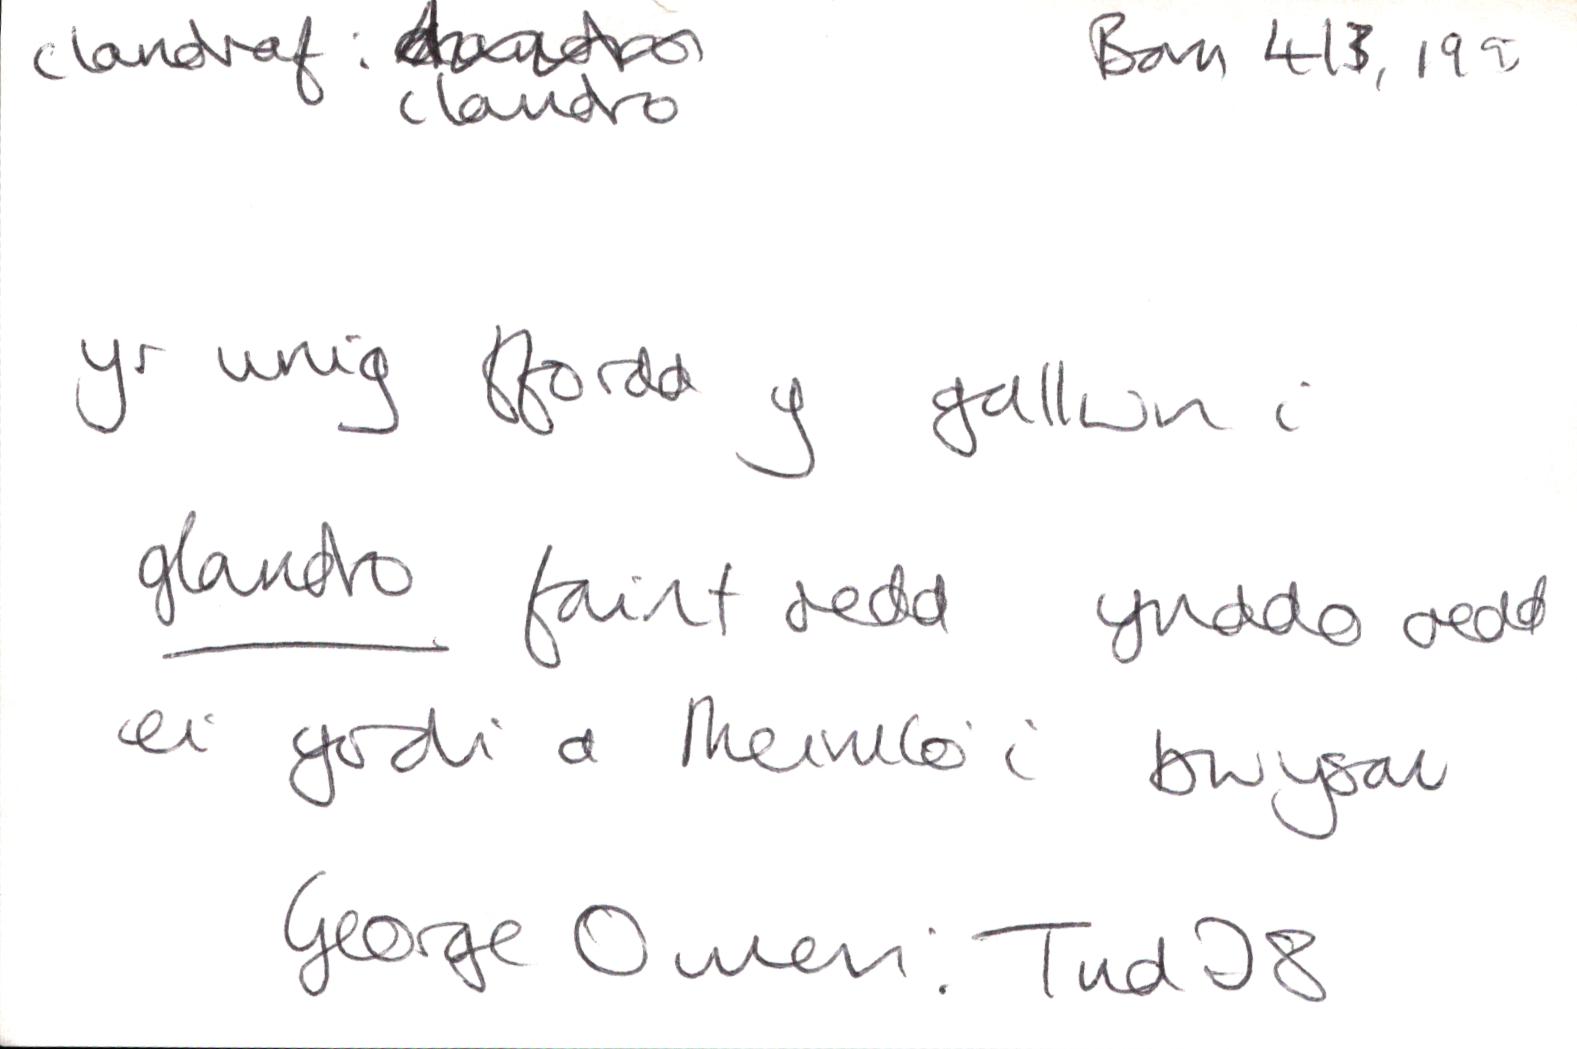 clandraf: clandro
Barn 413, 199
yr unig ffordd y gallwn i
glandro faint oedd ynddo oedd
ei godi a theimlo'i bwysau
George Owen: Tud 28